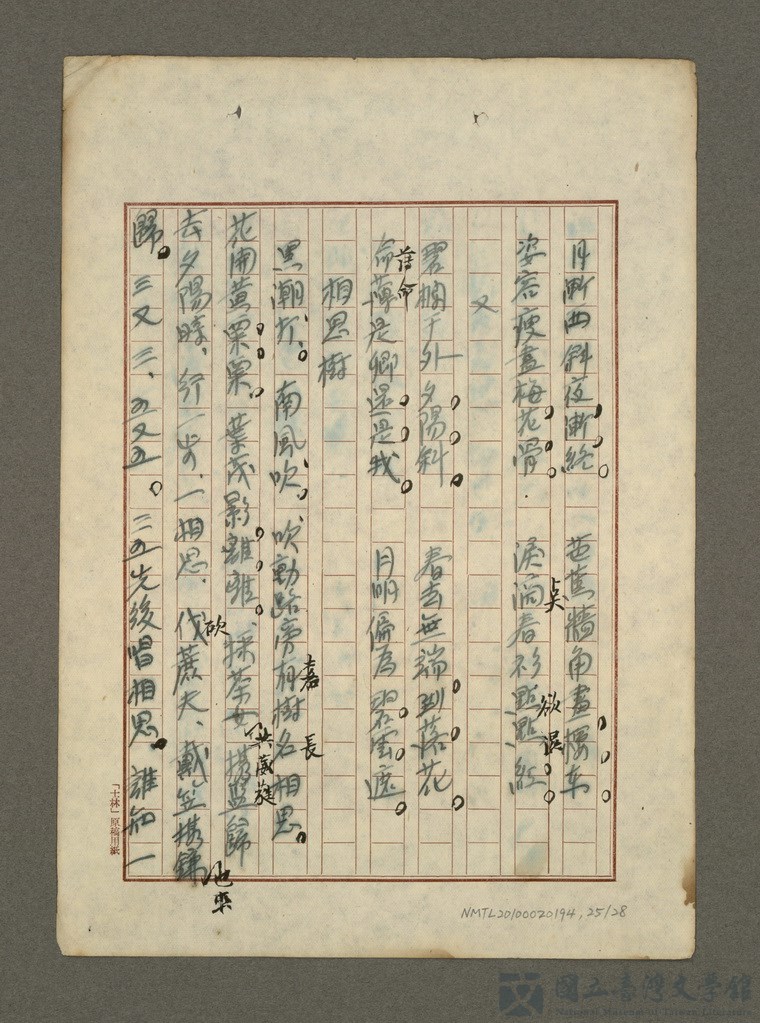 月漸西斜夜漸終。芭蕉牆角畫樓東。
姿容瘦盡梅花骨。淚滴春衫點點紅。
欲濕
又
碧欄干外夕陽斜。春去無端到落花。
命薄是卿還是我。月明偏為碧雲遮。
薄命
相思樹
黑潮打、南風吹。吹動路旁有樹名相思。
長
花開黃栗栗。葉茂影離離。採茶女攜籃歸
去夕陽時、行一步、一相思、伐蔗夫、戴笠攜鋤
砍
歸。三又三、五又五。三五先後唱相思。誰知一
「士林」原稿用紙
NMTL20100020194, 25/28
國立臺灣文學館
National Museum of Taiwan Literature